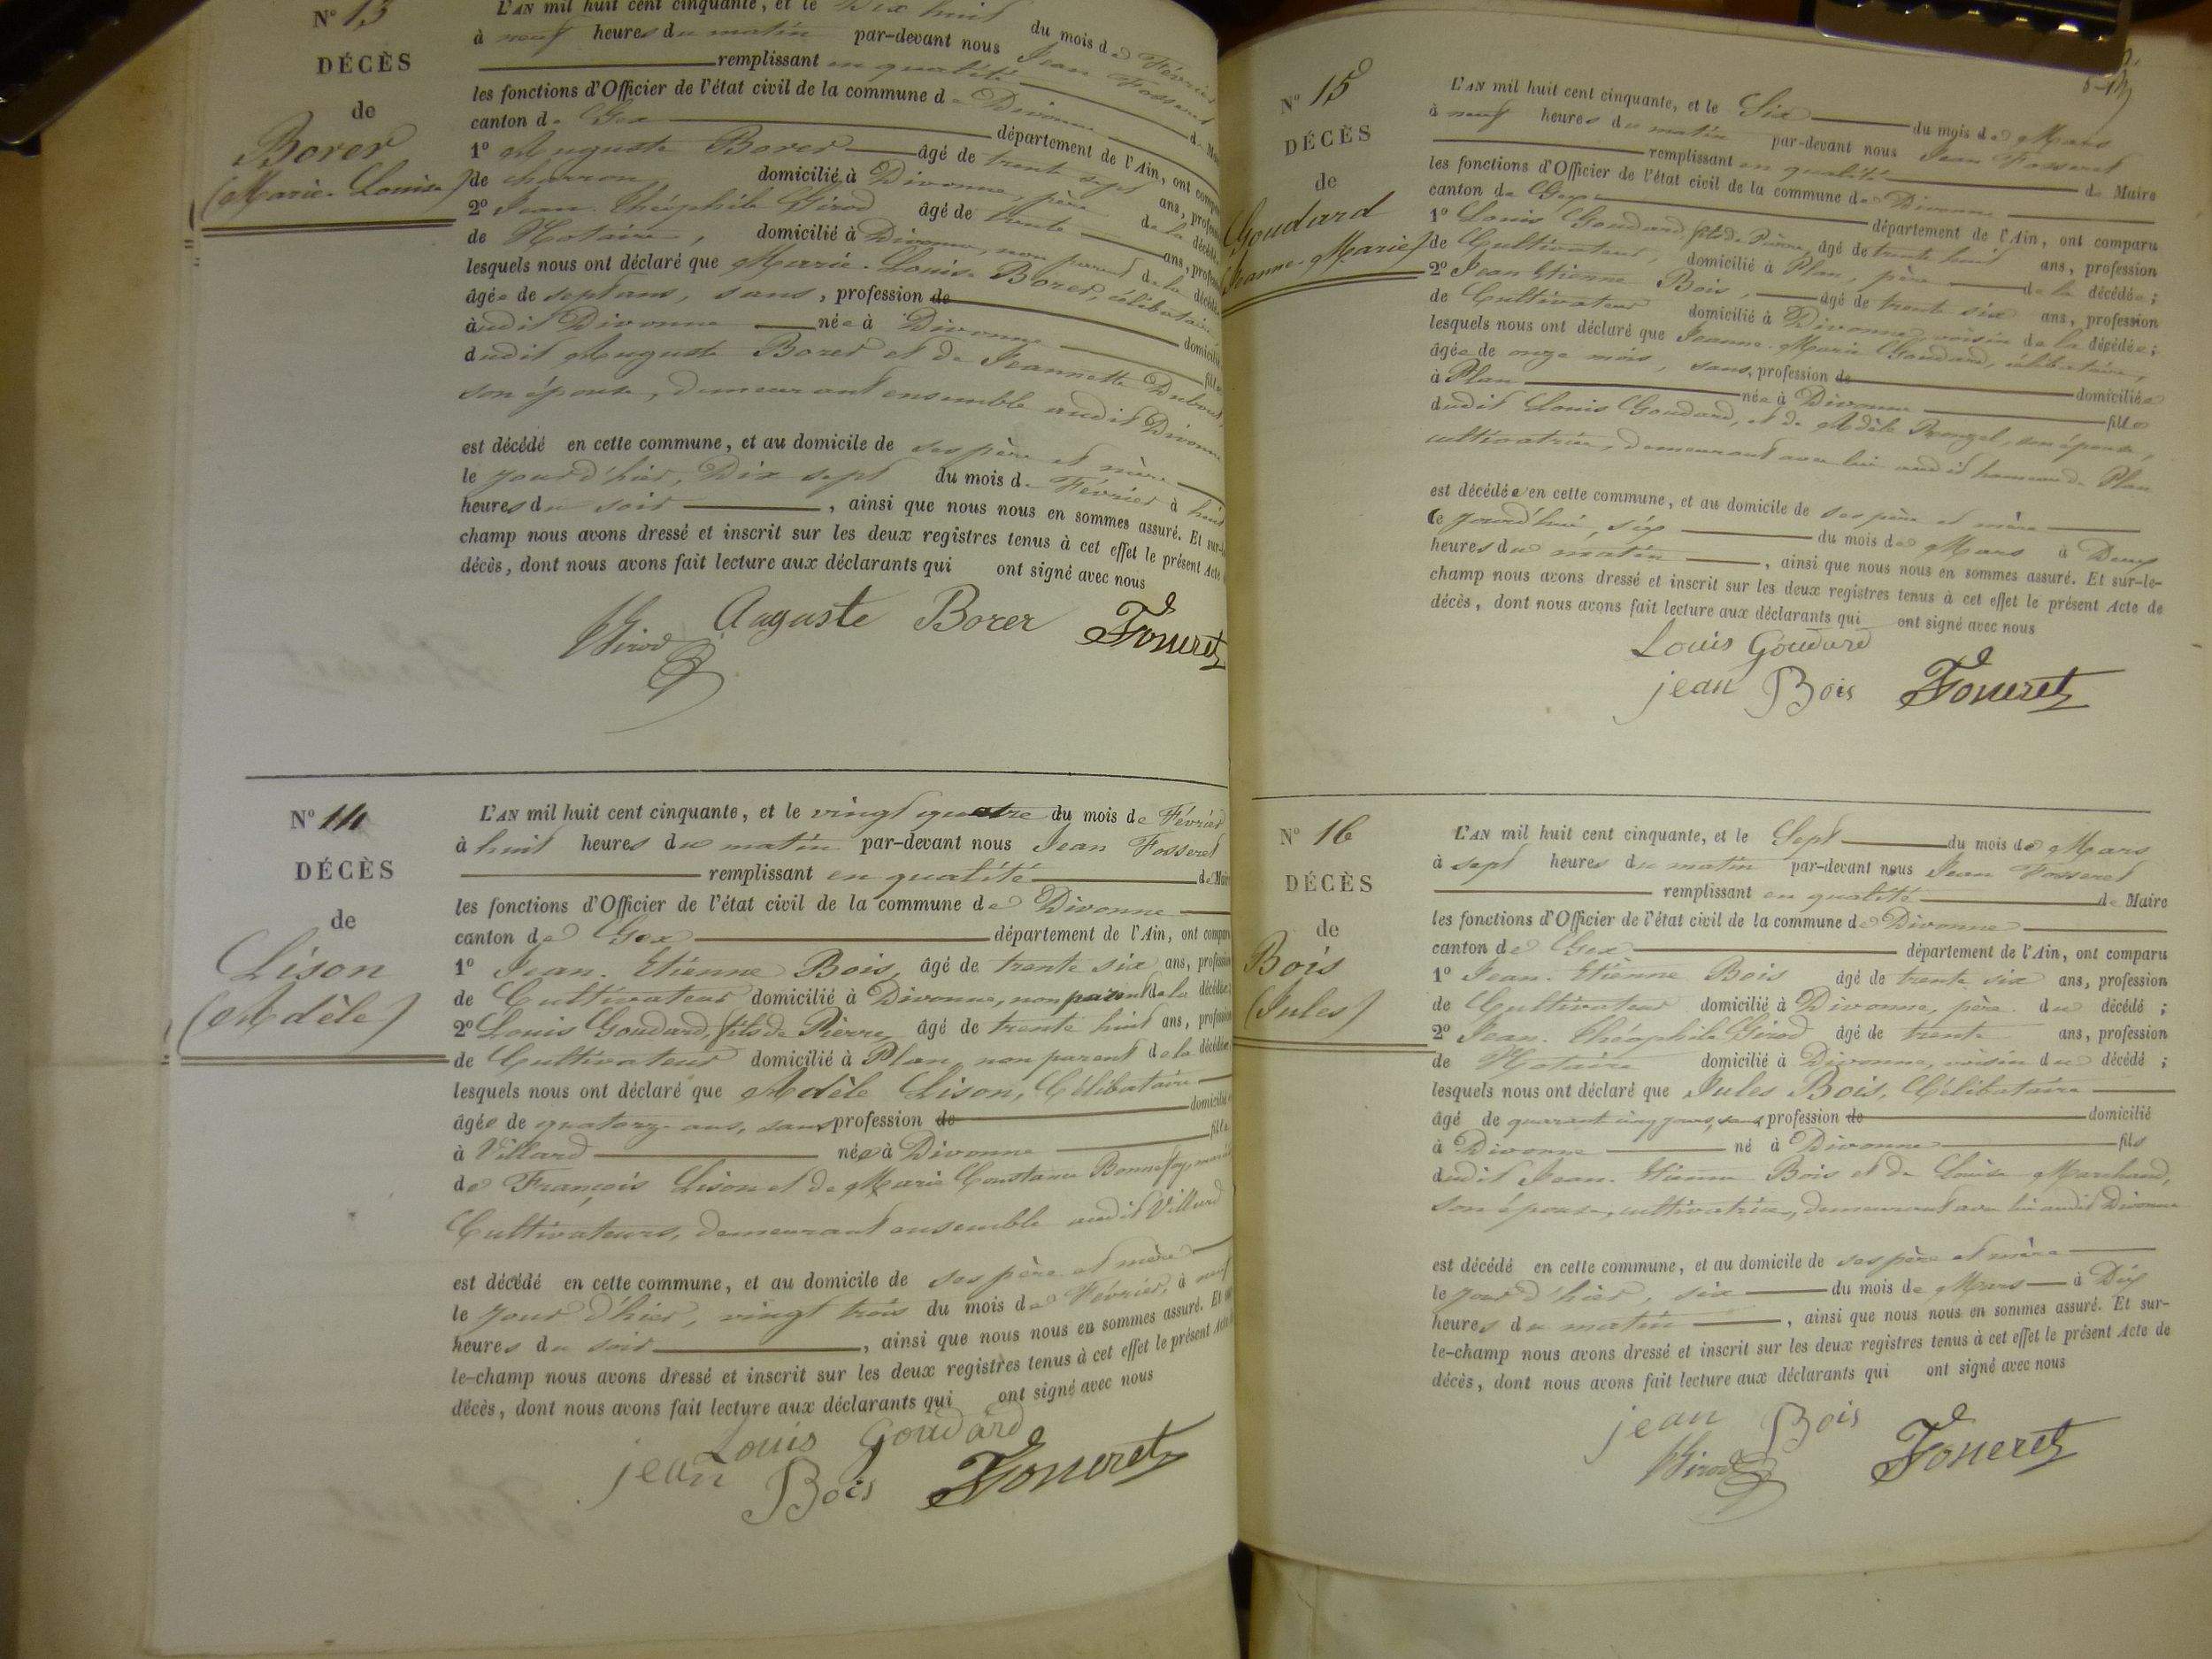 N° 13
DÉCÈS
de
Borer
(Marie-Louise)
L'AN mil huit cent cinquante, et le Dix huit du mois de Février
à neuf heures du matin par-devant nous Jean Fosseret
remplissant en qualité de Maire
les fonctions d'Officier de l'état civil de la commune de Divonne
canton de Gex département de l'Ain, ont comparu
1° Auguste Borer âgé de trente sept ans, profession
de charron, domicilié à Divonne, père de la décédée
2° Jean-Théophile Girod âgé de trente ans, profession
de Notaire, domicilié à Divonne, non parent de la décédée
lesquels nous ont déclaré que Marie-Louise Borer, célibataire
âgée de sept ans, sans, profession de domiciliée
audit Divonne née à Divonne fille
dudit Auguste Borer et de Jeannette Dubout,
son épouse, demeurant ensemble audit Divonne
est décédé en cette commune, et au domicile de ses père et mère
le jour d'hier, Dix sept du mois de Février à huit
heures du soir, ainsi que nous nous en sommes assuré. Et sur-le-
champ nous avons dressé et inscrit sur les deux registres tenus à cet effet le présent Acte de
décès, dont nous avons fait lecture aux déclarants qui ont signé avec nous
Auguste Borer
Girod Fosseret
N° 14
DÉCÈS
de
Lison
(Adèle)
L'AN mil huit cent cinquante, et le vingt quatre du mois de Février
à huit heures du matin par-devant nous Jean Fosseret
remplissant en qualité de Maire
les fonctions d'Officier de l'état civil de la commune de Divonne
canton de Gex département de l'Ain, ont comparu
1° Jean-Etienne Bois, âgé de trente six ans, profession
de Cultivateur domicilié à Divonne, non parent de la décédée;
2° Louis Goudard, fils de Pierre, âgé de trente huit ans, profession
de Cultivateur domicilié à Plan, non parent de la décédée
lesquels nous ont déclaré que Adèle Lison, Célibataire
âgée de quatorze ans, sans profession de domiciliée
à Villard née à Divonne fille
de François Lison et de Marie Constance Bonnefoy, mariés
Cultivateurs, demeurant ensemble audit Villard
est décédé en cette commune, et au domicile de ses père et mère
le jour d'hier, vingt trois du mois de Février, à neuf
heures du soir, ainsi que nous nous en sommes assuré. Et sur-
le-champ nous avons dressé et inscrit sur les deux registres tenus à cet effet le présent Acte de
décès, dont nous avons fait lecture aux déclarants qui ont signé avec nous
Louis Goudard
jean Bois Fosseret
N° 15
DÉCÈS
de
Goudard
Jeanne-Marie)
L'AN mil huit cent cinquante, et le Six du mois de Mars
à neuf heures du matin par-devant nous Jean Fosseret
remplissant en qualité de Maire
les fonctions d'Officier de l'état civil de la commune de Divonne
canton de Gex département de l'Ain, ont comparu
1° Louis Goudard fils de Pierre, âgé de trente huit ans, profession
de Cultivateur, domicilié à Plan, père de la décédée;
2° Jean Etienne Bois, âgé de trente six ans, profession
de Cultivateur domicilié à Divonne, voisin de la décédée;
lesquels nous ont déclaré que Jeanne-Marie Goudard, célibataire,
âgée de onze mois, sans, profession de domiciliée
à Plan née à Divonne fille
dudit Louis Goudard, et de Adèle son épouse,
cultivatrice, demeurant avec lui audit hameau de Plan
est décédée en cette commune, et au domicile de ses père et mère
le jourd'hui, six du mois de Mars à Deux
heures du matin, ainsi que nous nous en sommes assuré. Et sur-le-
champ nous avons dressé et inscrit sur les deux registres tenus à cet effet le présent Acte de
décès, dont nous avons fait lecture aux déclarants qui ont signé avec nous
Louis Goudard
jean Bois Fosseret
N° 16
DÉCÈS
de
Bois
(Jules)
L'AN mil huit cent cinquante, et le Sept du mois de Mars
à sept heures du matin par-devant nous Jean Fosseret
remplissant en qualité de Maire
les fonctions d'Officier de l'état civil de la commune de Divonne
canton de Gex département de l'Ain, ont comparu
1° Jean-Etienne Bois âgé de trente six ans, profession
de Cultivateur domicilié à Divonne, père du décédé;
2° Jean-Théophile Girod âgé de trente ans, profession
de Notaire domicilié à Divonne, voisin du décédé;
lesquels nous ont déclaré que Jules Bois, Célibataire
âgé de quarant cinq jours, sans profession de domicilié
à Divonne né à Divonne fils
dudit Jean-Etienne Bois et de Louise Marchand,
son épouse, cultivatrice, demeurant avec lui audit Divonne
est décédé en cette commune, et au domicile de ses père et mère
le jour d'hier, six du mois de Mars à Dix
heures du matin, ainsi que nous nous en sommes assuré. Et sur-
le-champ nous avons dressé et inscrit sur les deux registres tenus à cet effet le présent Acte de
décès, dont nous avons fait lecture aux déclarants qui ont signé avec nous
jean Bois
Girod Fosseret